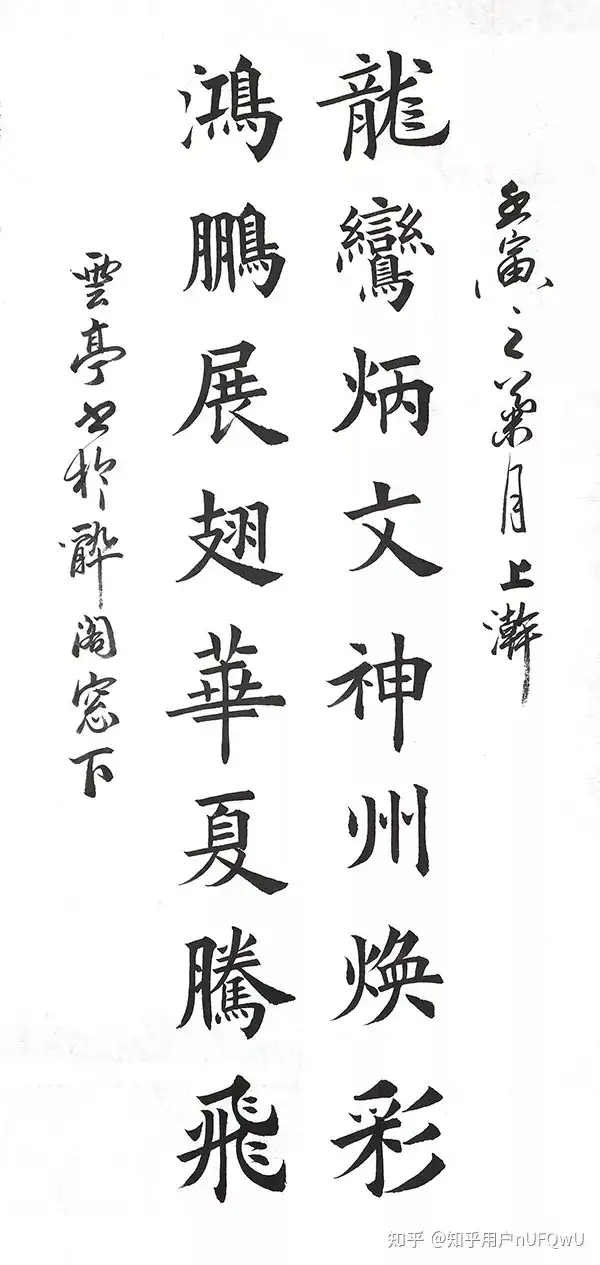 壬寅之菊月上澣
龍鸞炳文神州焕彩
鴻鵬展翅華夏騰飛
雲亭书於醉阁窓下
知乎 @知乎用户nUFQwU